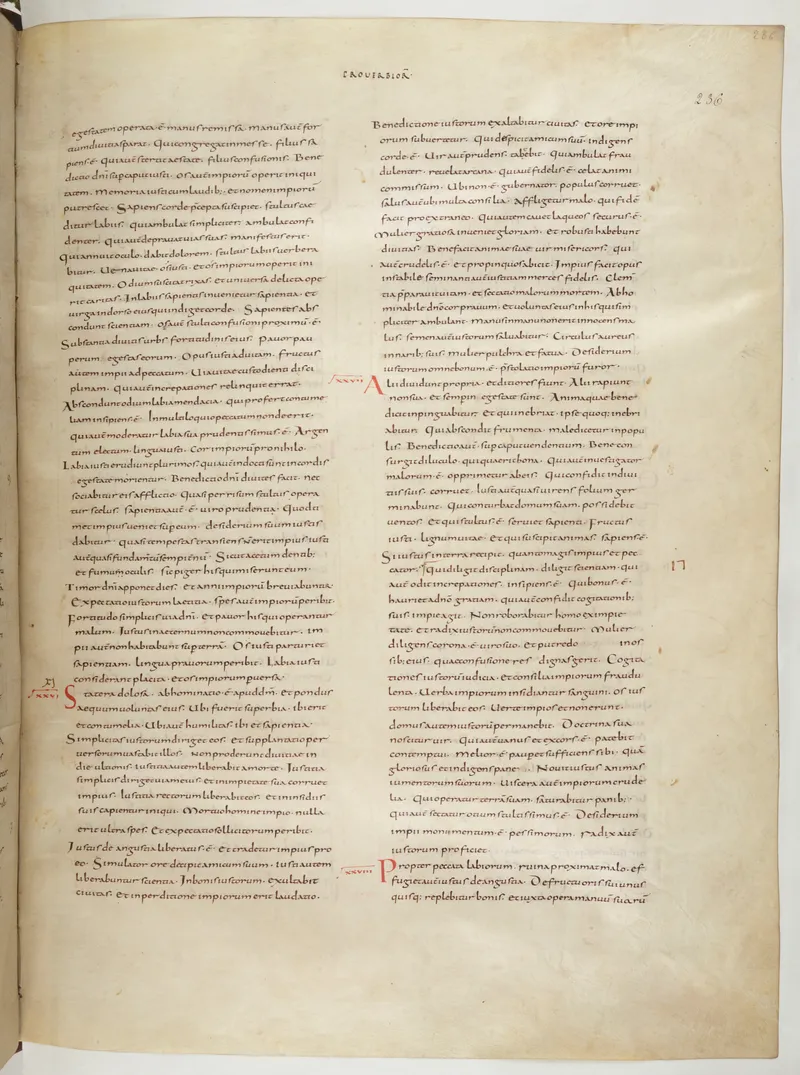 PROUERBIOR̄
236
egestatem operata · ē · manus remissa · manus aūt for
tiū diuitias parat · Qui congregat in messe · filius sa
piens · ē · qui aūt stertit aestate · filius confusionis · Bene
dictio dn̄i sup caput iusti · os aūt impiorū operit iniqui
tatem · Memoria iusti cum laudib; · et nomen impiorū
putrescet · Sapiens corde p̄cepta suscipiet · stultus cae
ditur labiis · qui ambulat simpliciter · ambulat confi
denter · qui aūt deprauat uias suas · manifestus erit ·
qui annuit oculo · dabit dolorem · stultus labiis uerbera
bitur · Uena uitae os iusti · et os impiorum operit ini
quitatem · Odium suscitat rixas · et uniuersa delicta ope
rit caritas · In labiis sapientis inuenietur sapientia · et
uirga in dorso eius qui indiget corde · Sapientes abs
condunt scientiam · os aūt stulti confusioni proximū · ē ·
Substantia diuitis urbs fortitudinis eius · Pauor pau
perum egestas eorum · Opus iusti ad uitam · fructus
autem impii ad peccatum · Uia uitae custodienti disci
plinam · qui aūt increpationes relinquit errat ·
Abscondunt odium labia mendacia · qui profert contume
liam insipiens · ē · In multiloquio peccatum non deerit ·
qui aūt moderatur labia sua prudentissimus · ē · Argen
tum electum lingua iusti · Cor impiorū pro nihilo ·
Labia iusti erudiunt plurimos · qui aūt indocti sunt in cordis
egestate morientur · Benedictio dn̄i diuites facit · nec
sociabitur eis afflictio · Quasi per risum stultus opera
tur scelus · sapientia aūt · ē · uiro prudentia · Quod ti
met impius ueniet sup eum · desiderium suum iustis
dabitur · quasi tempestas transiens n̄ erit impius · iustus
aūt quasi fundamtū sempitnū · Sicut acetum dentib;
et fumus oculis · sic piger his qui miserunt eum ·
Timor dn̄i apponet dies · et anni impiorū breuiabuntur ·
Expectatio iustorum laetitia · spes aūt impiorū peribit ·
Fortitudo simplicis uia dn̄i · et pauor his qui operantur
malum · Iustus in aeternum non commouebitur · im
pii aūt non habitabunt sup terrā · Os iusti parturiet
sapientiam · lingua prauorum peribit · Labia iusti
considerant placita · et os impiorum peruersa ·
XI
XXVI Statera dolosa · abhominatio · ē apud dm̄ · et pondus
aequum uoluntas eius · Ubi fuerit superbia · ibi erit
et contumelia · Ubi aūt humilitas · ibi et sapientia ·
Simplicitas iustorum diriget eos · et supplantatio per
uersorum uastabit illos · Non proderunt diuitiae in
die ultionis · iustitia autem liberabit a morte · Iustitia
simplicis diriget uiam eius · et in impietate sua corruet
impius · Iustitia rectorum liberabit eos · et in insidiis
suis capientur iniqui · Mortuo homine impio · nulla
erit ultra spes · Et expectatio sollicitorum peribit ·
Iustus de angustia liberatus · ē · et tradetur impius pro
eo · Simulator ore decipit amicum suum · iusti autem
liberabuntur scientia · In bonis iustorum exultabit
ciuitas · et in perditione impiorum erit laudatio ·
Benedictione iustorum exaltabitur ciuitas · et ore impi
orum subuertetur · Qui despicit amicum suū · indigens
corde · ē · Uir aūt prudens tacebit · Qui ambulat frau
dulenter · reuelat arcana · qui aūt fidelis · ē · celat animi
commissum · Ubi non · ē · gubernator · populus corruet ·
salus aūt ubi multa consilia · Affligetur malo · qui fidē
facit pro extraneo · Qui autem cauet laqueos securus · ē ·
Mulier gratiosa inueniet gloriam · et robusti habebunt
diuitias · Benefacit animae suae uir misericors · qui
aūt crudelis · ē · et propinquos abicit · Impius facit opus
instabile · seminanti aūt iustitiam merces fidelis · Clem̄
tia p̄parat uitam · et sectatio malorum mortem · Abho
minabile dn̄o cor prauum · et uoluntas eius in his qui sim
pliciter ambulant · Manus in manu non erit innocens ma
lus · semen aūt iustorum saluabitur · Circulus aureus
in narib; suis · mulier pulchra et fatua · Desiderium
iustorum omne bonum · ē · p̄stolatio impiorū furor ·
XXVII Alii diuidunt propria · et ditiores fiunt · Alii rapiunt
non sua · et semp in egestate sunt · Anima quae bene
dicit inpinguabitur · Et qui inebriat · ipse quoq; inebri
abitur · Qui abscondit frumenta · maledicetur in popu
lis · Benedictio aūt · sup caput uendentium · Bene con
surgit diluculo · qui quaerit bona · Qui aūt inuestigator
malorum · ē · opprimetur ab eis · Qui confidit in diui
tiis suis · corruet · Iusti aūt quasi uirens folium ger
minabunt · Qui conturbat domum suam · possidebit
uentos · Et qui stultus · ē · seruiet sapienti · Fructus
iusti · lignum uitae · Et qui suscipit animas · sapiens · ē ·
Si iustus in terra recipit · quanto magis impius et pec
cator · Qui diligit disciplinam · diligit scientiam · qui
aūt odit increpationes · insipiens · ē · Qui bonus · ē ·
hauriet a dn̄o gratiam · qui aūt confidit cogitationib;
suis · impie agit · Non roborabitur homo ex impie
tate · et radix iustorū non commouebitur · Mulier
diligens corona · ē · uiro suo · et putredo in os
sib; eius · quae confusione res dignas gerit · Cogita
tiones iustorū iudicia · et consilia impiorum fraudu
lenta · Uerba impiorum insidiantur sanguini · os ius
torum liberabit eos · Uerte impios et non erunt ·
domus autem iustorū permanebit · Doctrina sua
noscitur uir · Qui aūt uanus et excors · ē · patebit
contemptui · Melior · ē · pauper sufficiens sibi · quā
gloriosus et indigens pane · Nouit iustus animas
iumentorum suorum · Uiscera aūt impiorum crude
lia · Qui operatur terrā suam · saturabitur panib; ·
qui aūt sectatur otium stultissimus · ē · Desiderium
impii monumentum · ē · pessimorum · radix aūt
iustorum proficiet ·
XXVIII Propter peccata labiorum · ruina proximat malo · ef
fugiet aūt iustus de angustia · De fructu oris sui unus
quisq; replebitur bonis · et iuxta opera manuū suarū